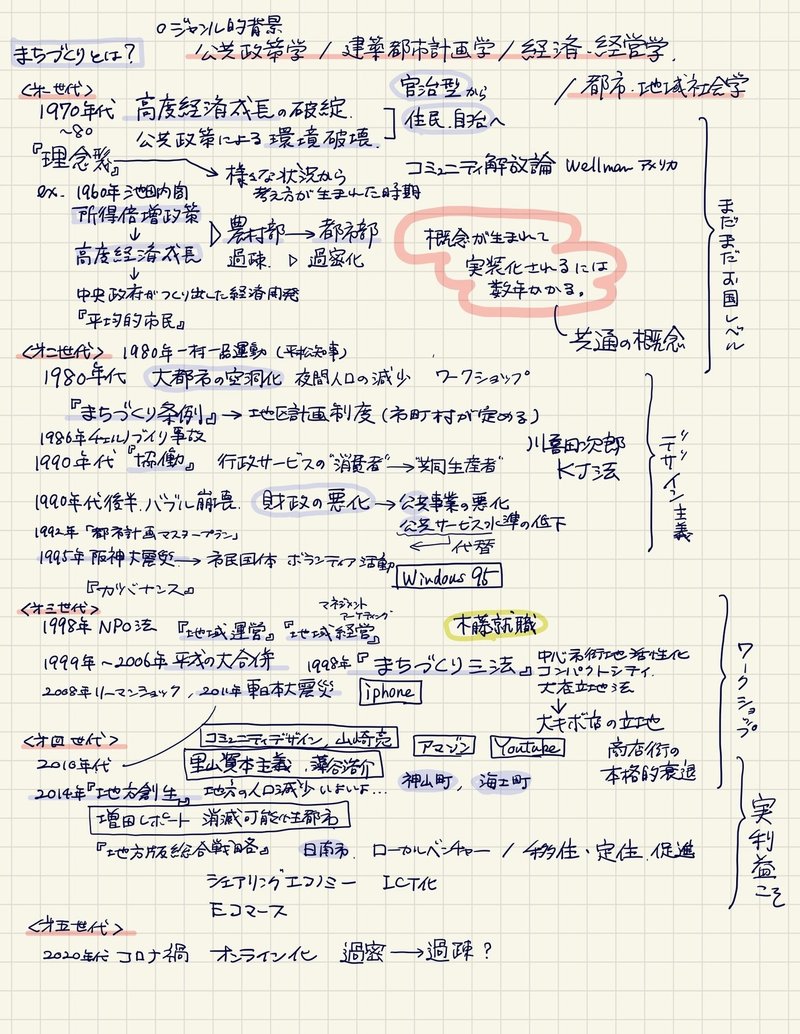 ○ジャンル的背景
まちづくりとは？
公共政策学 / 建築都市計画学 / 経済・経営学
/ 都市・地域社会学
〈第一世代〉
1970年代 高度経済成長の破綻.
～80
公共政策による環境破壊.
官治型から
住民.自治へ
『理念形』
様々な状況から
考え方が生まれた時期
コミュニティ解放論 Wellman アメリカ
ex. 1960年 池田内閣
所得倍増政策
↓
高度経済成長
農村部 → 都市部
過疎. ▷ 過密化
概念が生まれて
実装化されるには
数年かかる。
共通の概念
↓
中央政府がつくり出した経済開発
『平均的市民』
まだまだお国レベル
〈第二世代〉 1980年 一村一品運動 (平松知事)
1980年代 大都市の空洞化 夜間人口の減少 ワークショップ
『まちづくり条例』→ 地区計画制度 (市町村が定める)
1986年チェルノブイリ事故
1990年代『協働』 行政サービスの“消費者”→“共同生産者”
川喜田次郎
KJ法
1990年代後半.バブル崩壊. 財政の悪化 → 公共事業の悪化
公共サービス水準の低下
1992年『都市計画マスタープラン』
← 代替
1995年 阪神大震災 → 市民団体 ボランティア活動
Windows 95
『ガバナンス』
デザイン主義
〈第三世代〉
1998年 NPO法 『地域運営』『地域経営』
マネジメント
マーケティング
木藤就職
1999年～2006年 平成の大合併 1998年『まちづくり三法』
中心市街地活性化
コンパクトシティ.
大店立地法
2008年リーマンショック, 2011年 東日本大震災 iphone
↓
大キボ店の立地
商店街の
本格的衰退
ワークショップ
〈第四世代〉
コミュニティデザイン, 山崎亮
アマゾン Youtube
2010年代
里山資本主義. 藻谷浩介
2014年『地方創生』 地方の人口減少いよいよ… 神山町, 海士町
増田レポート 消滅可能性都市
『地方版総合戦略』 日南市. ローカルベンチャー / 移住・定住.促進
シェアリングエコノミー ICT化
Eコマース
実利益こそ
〈第五世代〉
2020年代 コロナ禍 オンライン化 過密 → 過疎？